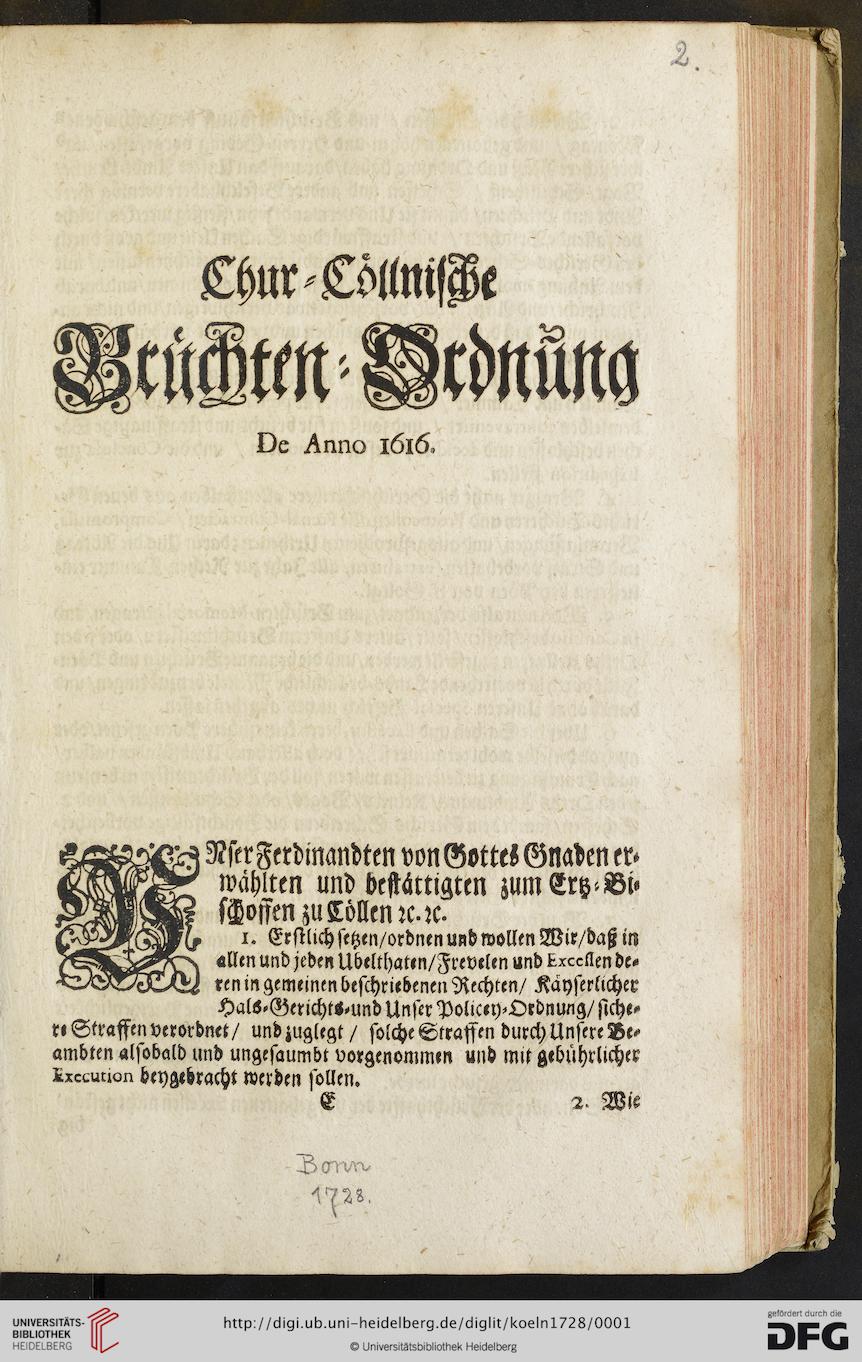 2.
Chur-Cöllnische
Brüchten-Ordnŭng
De Anno 1616.
UNser Ferdinandten von Gottes Gnaden er-
wählten und bestättigten zum Ertz-Bi-
schoffen zu Cöllen ꝛc. ꝛc.
1. Erstlich setzen/ordnen und wollen Wir/daß in
allen und jeden Ubelthaten/Frevelen und Excessen de-
ren in gemeinen beschriebenen Rechten/ Käyserlicher
Hals-Gerichts-und Unser Policey-Ordnung/ siche-
re Straffen verordnet/ und zuglegt / solche Straffen durch Unsere Be-
ambten alsobald und ungesaumbt vorgenommen und mit gebührlicher
Execution beygebracht werden sollen.
E 2. Wie
Bonn
1728.
UNIVERSITÄTS-
BIBLIOTHEK
HEIDELBERG
http://digi.ub.uni-heidelberg.de/diglit/koeln1728/0001
© Universitätsbibliothek Heidelberg
gefördert durch die
DFG